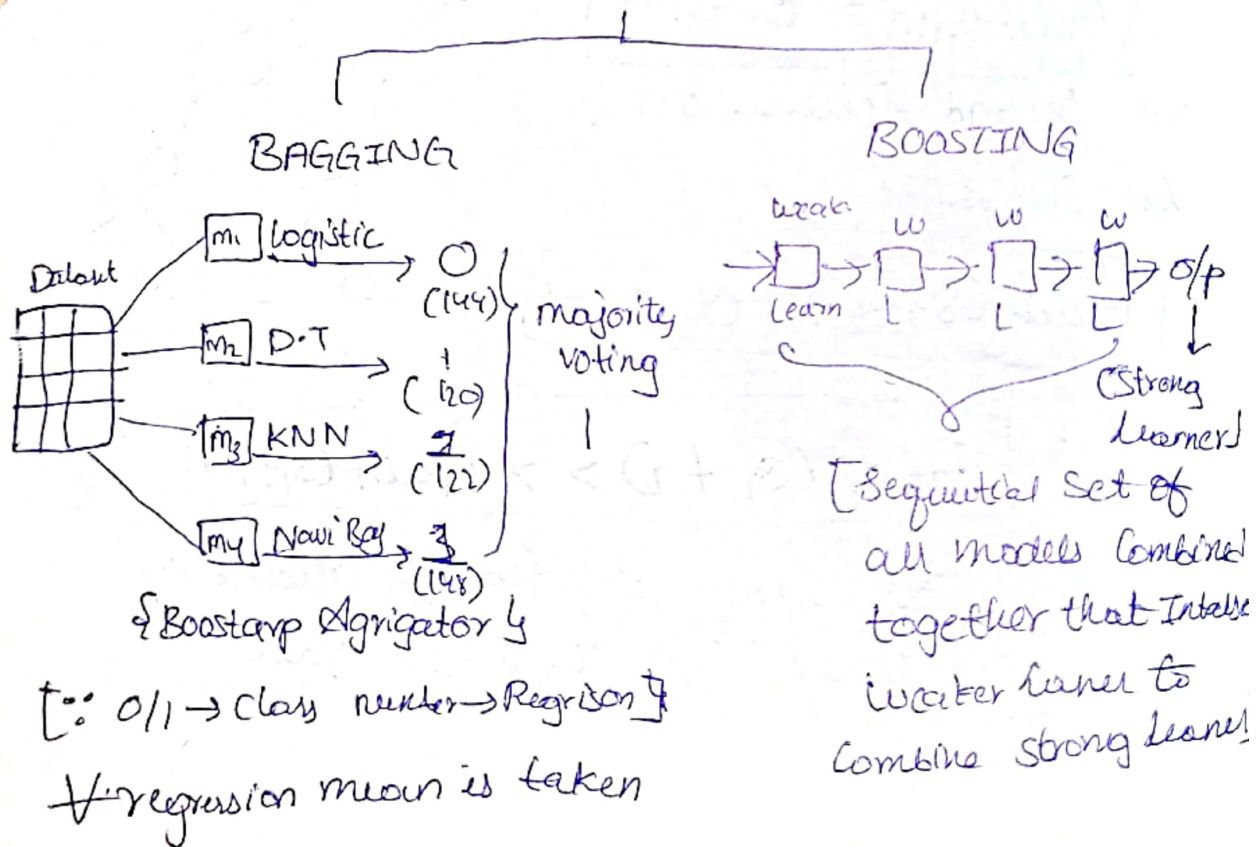 BAGGING
BOOSTING
Dataset
m1 Logistic
0
(144)
m2 D.T
1
(120)
m3 KNN
1
(122)
m4 Navi Bay
(148)
majority
voting
1
{Boostarp Agrigator}
[∵ 0/1 → Class number → Regrison]
∀ regression mean is taken
weak W W W
→ → → → → O/P
Learn L L L
(Strong
Learner)
[Sequitial Set of
all models Combined
together that
weaker to
Combine strong